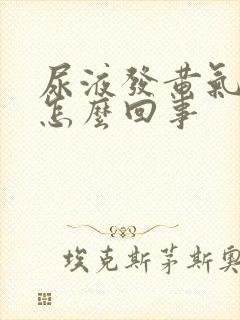 尿液發黃氣
怎麼回事
埃克斯茅斯奧